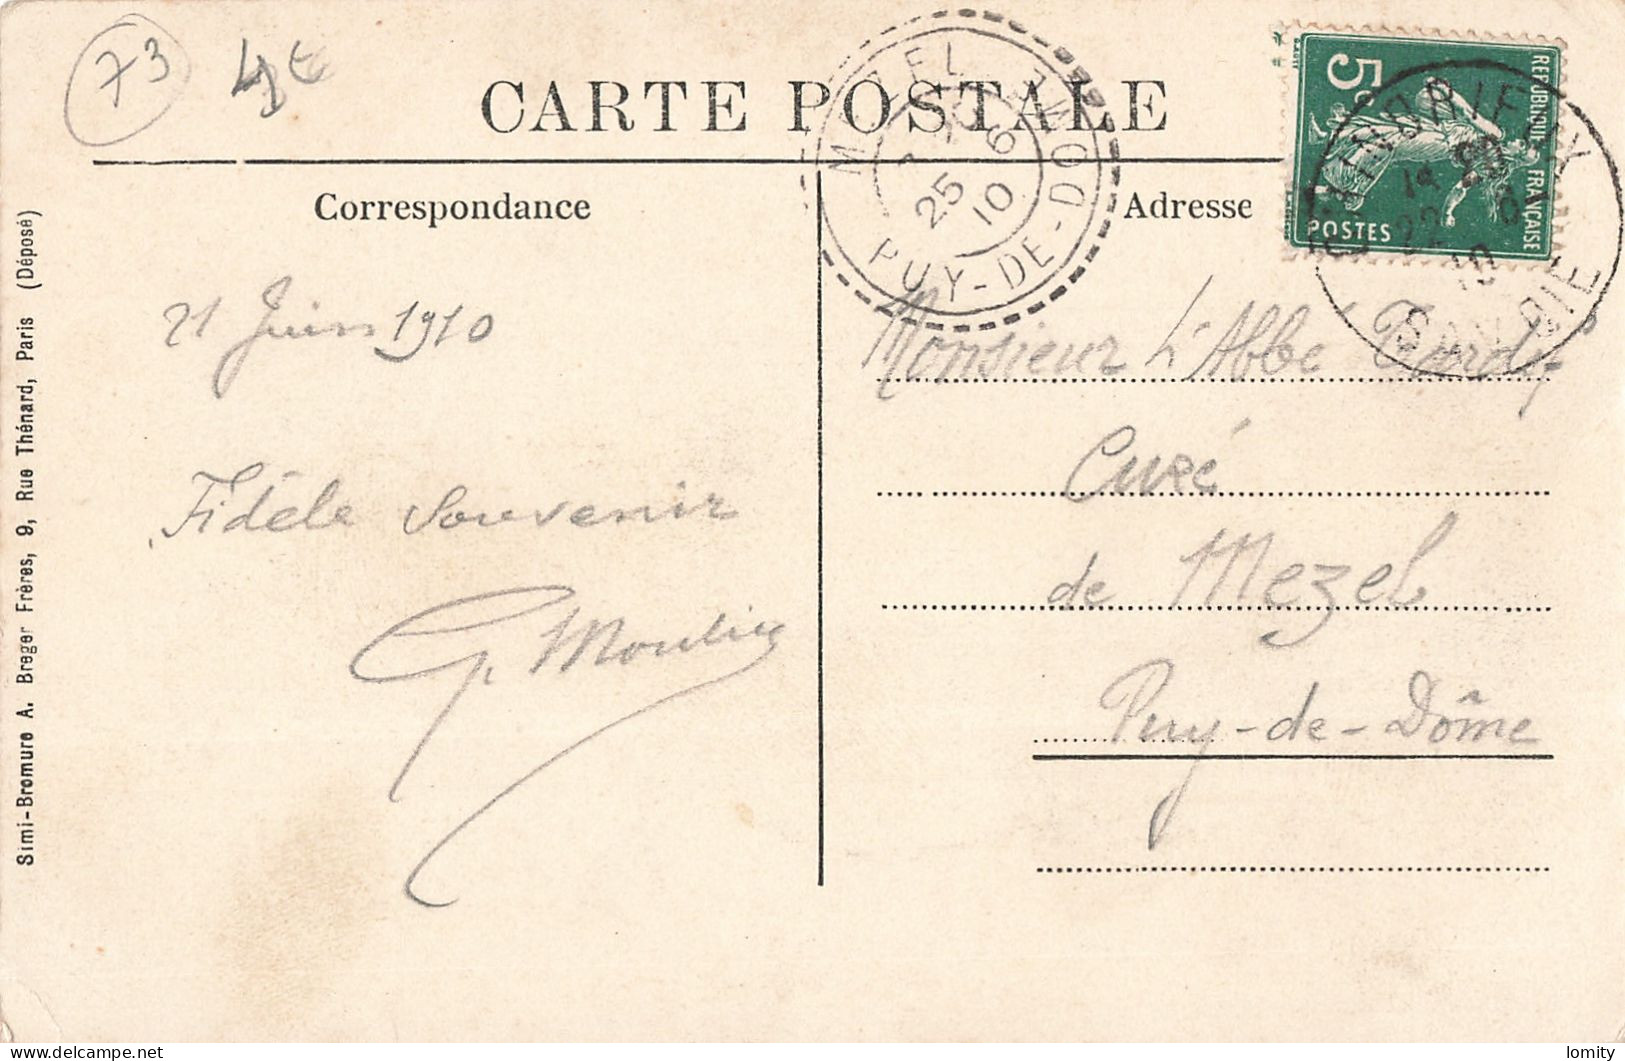 73
4€
CARTE POSTALE
Correspondance
Adresse
MEZEL
25 6
10
PUY-DE-DÔME
5c
REPUBLIQUE FRANÇAISE
POSTES
CHINDRIEUX
22
10
SAVOIE
21 Juin 1910
Fidèle souvenir
G. Moulin
Monsieur L'Abbé
Curé
de Mezel
Puy-de-Dôme
Simi-Bromure A. Breger Frères, 9, Rue Thénard, Paris (Déposé)
lomity
delcampe.net